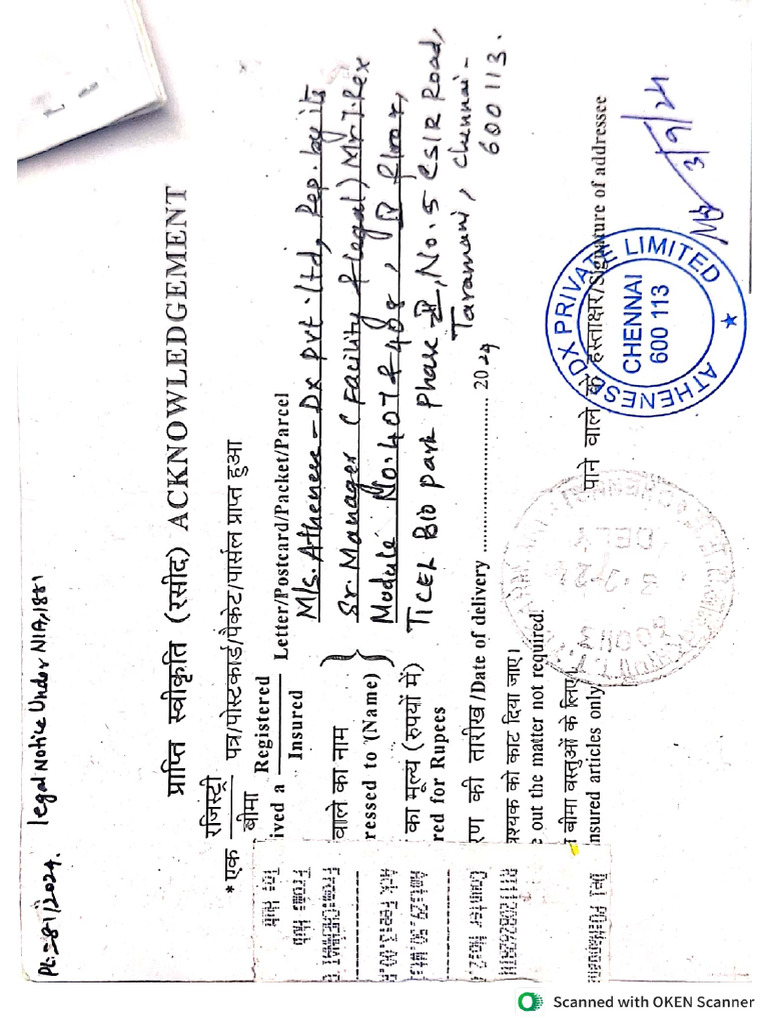 PL:-81/2024. legal Notice Under NIA,1881
प्राप्ति स्वीकृति (रसीद) ACKNOWLEDGEMENT
रजिस्ट्री
*एक पत्र/पोस्टकार्ड/पैकेट/पार्सल प्राप्त हुआ
बीमा
Registered
ived a Letter/Postcard/Packet/Parcel
Insured
वाले का नाम
ressed to (Name)
M/s. Athenese-Dx Pvt. Ltd, Rep. by its
Sr. Manager (Facility & legal) Mr. J. Rex
Module No. 407 & 408, IV floor,
TICEL BIO Park Phase II, No. 5 CSIR Road,
Taramani, Chennai-
600 113.
का मूल्य (रुपयों में)
red for Rupees
रण की तारीख /Date of delivery 2024
वश्यक को काट दिया जाए।
e out the matter not required.
बीमा वस्तुओं के लिए।
nsured articles only
पाने वाले के हस्ताक्षर/Signature of addressee
3/9/24
ATHENESE-DX PRIVATE LIMITED
CHENNAI
600 113
DELY
3-9-24
600113
Amt:29.50
Ack Fee:3.00
Counter No:2
Scanned with OKEN Scanner